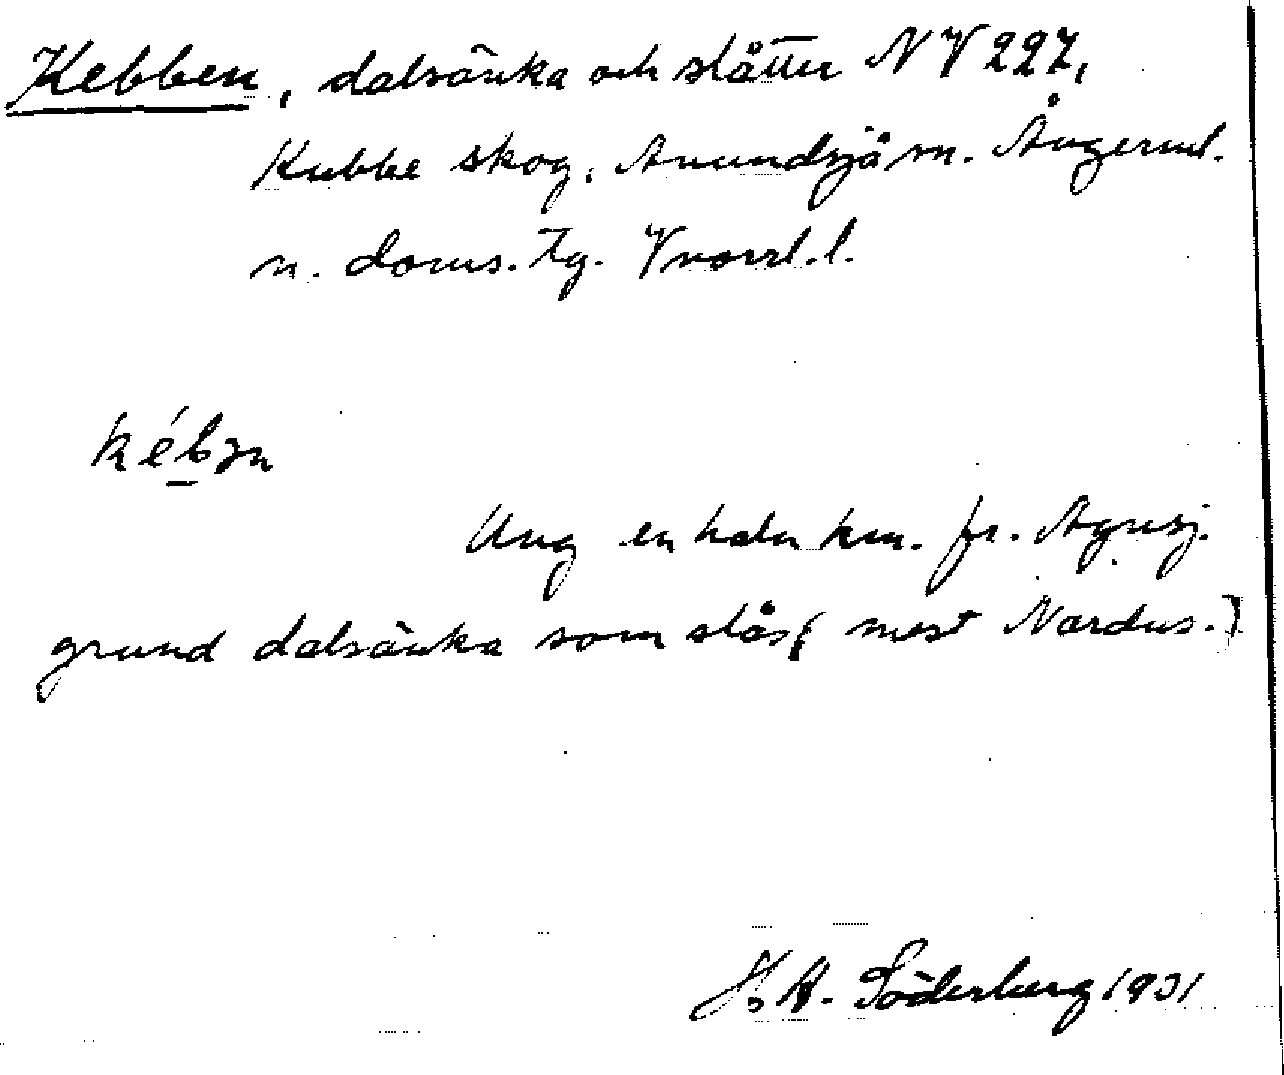 Kebben, dalsänka och slåtter NV 227,
Kubbe skog, Anundsjö sn. Ångerml.
n. doms. tg. Vnorrl. l.
kébən
Ung en halv km. fr. Agnsj.
grund dalsänka som slås (mest Nardus.)
H. A. Söderberg 1931